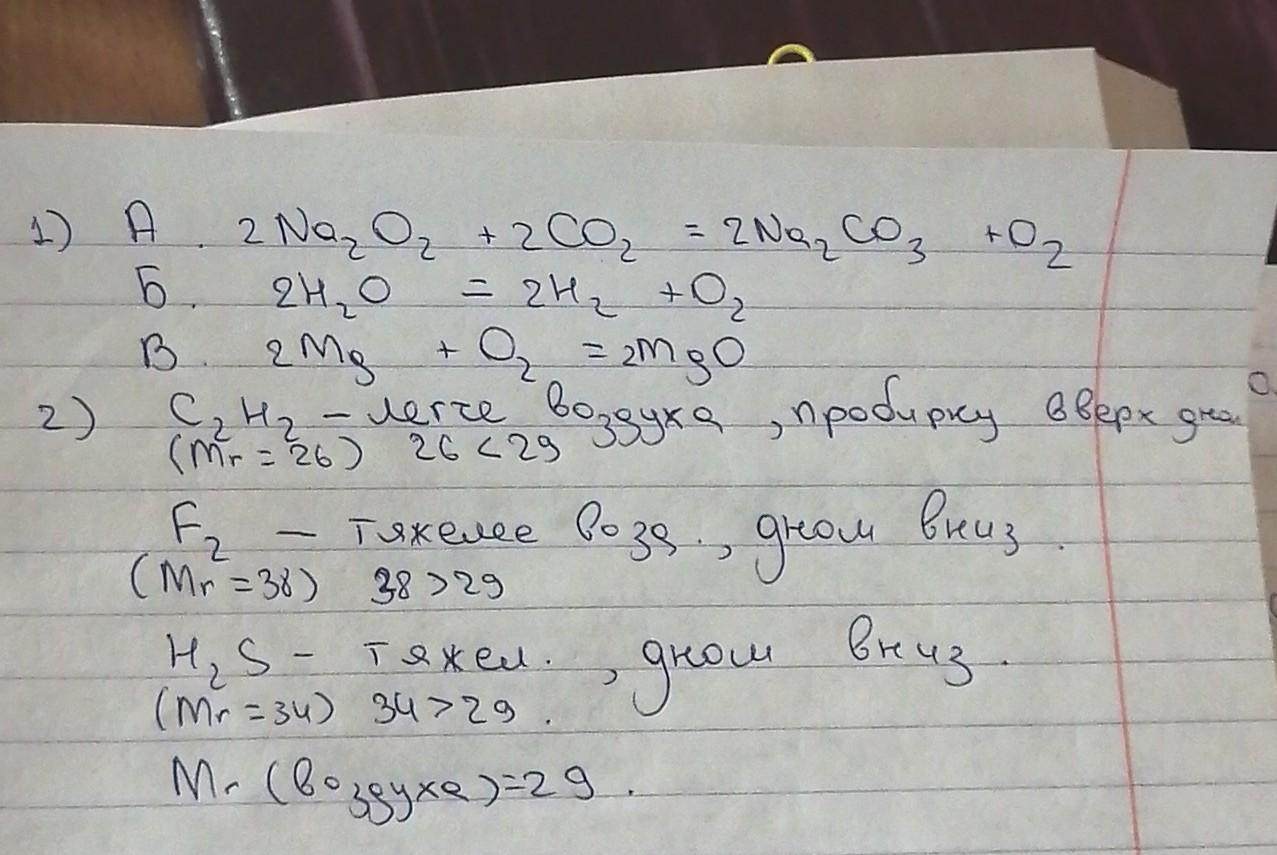 1) А. 2Na₂O₂ + 2CO₂ = 2Na₂CO₃ + O₂
Б. 2H₂O = 2H₂ + O₂
В. 2Mg + O₂ = 2MgO
2) C₂H₂ – легче воздуха, пробирку вверх дно
(Mr = 26) 26 < 29
F₂ – тяжелее возд., дном вниз.
(Mr = 38) 38 > 29
H₂S – тяжел., дном вниз.
(Mr = 34) 34 > 29.
Mr (воздуха) = 29.